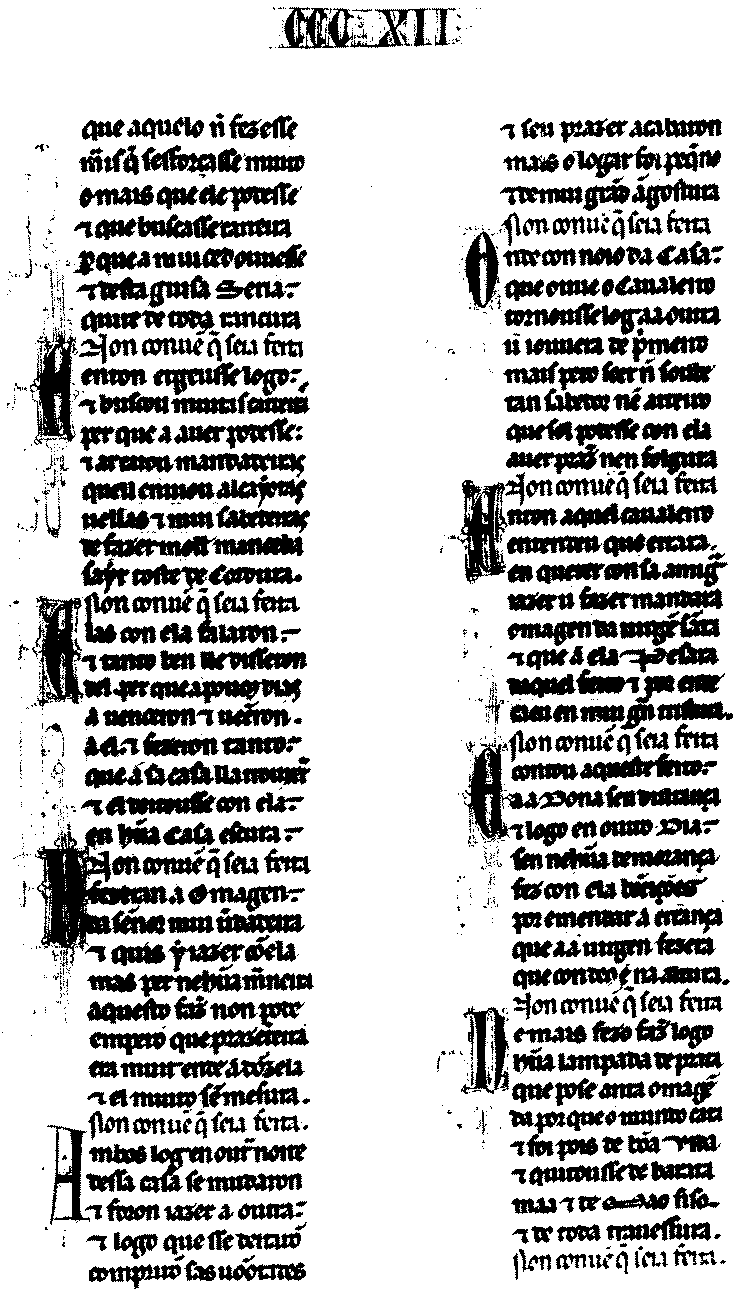 CCC XII
que aquelo ñ fezesse
mais q̃ sessforçasse muito
o mais que ele podesse
⁊ que buscasse maneira
per que a mui ced ouuesse
⁊ desta guisa Seria:
quite de toda rancura
Non conuẽ q̃ seia feita
Enton ergeusse logo:
⁊ buscou muitas carreiras
per que a auer podesse:
⁊ artuiou mandadeiras
quell enuiou alcayotas
uellas ⁊ mui sabedeiras
de fazer moller manceba
sayr toste de Cordura.
Non conuẽ q̃ seia feita
Elas con ela falaron:
⁊ tanto ben lle disseron
del per que a poucos dias
a uenceron ⁊ ueẽron.
a el ⁊ fezeron tanto:
que a sa casa
⁊ el deitousse con ela:
en hũa Casa escura:
Non conuẽ q̃ seia feita
a Omagen:
da sẽnor mui uerdadeira
⁊ quis y iazer cõ ela
mas per nehũa mãneira
aquesto faz̃ non pode
empero que prazenteira
era muit ende a dõzela
⁊ el muito sẽ mesura.
Non conuẽ q̃ seia feita.
Ambos log en outr noite
dessa casa se mudaron
⁊ foron iazer a outra:
⁊ logo que sse deitarõ
compriro sas uoõtades
⁊ seu prazer acabaron
mais o logar foi peq̃no
⁊ de mui grãd ãgostura
Non conuẽ q̃ seia feita
Onde con noio da Casa:
que ouue o Caualeiro
tornousse log aa outra
u iouuera de p̃meiro
mais pero seer ñ soube
tan sabedor nẽ arteiro
que sol podesse con ela
auer praz̃ nen folgura
Non conuẽ q̃ seia feita
Enton aquel caualeiro
entendeu que errara.
en querer con sa amiga
iazer u fazer mandara
omagen da uirgẽ sãta
⁊ que a ela Pesara
daquel feito ⁊ por ende
caeu en mui grñ tristura.
Non conuẽ q̃ seia feita
E contou aqueste feito:
aa Dona sen duuidança
⁊ logo en outro Dia:
sen nehũa demorança
fez con ela beeyções
por emendar a errança
que aa uirgen fezera
que con deo é na altura.
Non conuẽ q̃ seia feita
De mais fezo faz̃ logo
hũa lampada de prata
que pose anta omagẽ
da por que o mundo cata
⁊ foi pois de bõa Vida
⁊ quitousse de barata
maa ⁊ de siso.
⁊ de toda trauessura.
Non conuẽ q̃ seia feita.